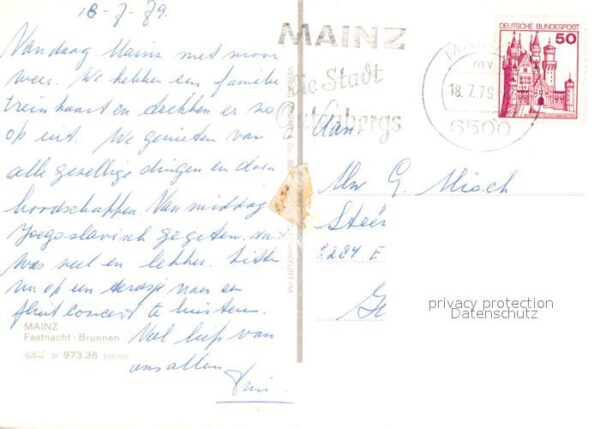 18-7-79
Vandaag Mainz met mooi
weer. We hebben een familie
treinkaart en trekken er zo
op uit. We genieten van
alle gezellige dingen en doen
boodschappen. Van middag
Joegoslavisch gegeten, dat
was veel en lekker. Zitten
nu op een terasje naar een
fluitconcert te luisteren.
Veel liefs van
ons allen
MAINZ
Fastnacht - Brunnen
31 973.36
MAINZ
die Stadt
Gutenbergs
18.7.79
6500
DEUTSCHE BUNDESPOST
50
Aan
Mw G. Misch
Steen
2284 E
privacy protection
Datenschutz